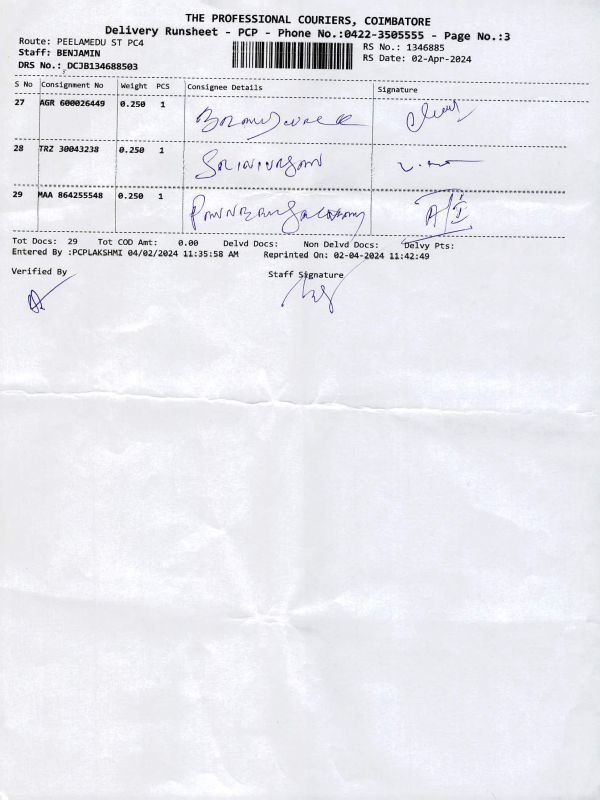 THE PROFESSIONAL COURIERS, COIMBATORE
Delivery Runsheet - PCP - Phone No.:0422-3505555 - Page No.:3
Route: PEELAMEDU ST PC4
Staff: BENJAMIN
DRS No.: DCJB134688503
RS No.: 1346885
RS Date: 02-Apr-2024
S No Consignment No Weight PCS Consignee Details Signature
27 AGR 600026449 0.250 1
28 TRZ 30043238 0.250 1
29 MAA 864255548 0.250 1
Tot Docs: 29 Tot COD Amt: 0.00 Delvd Docs: Non Delvd Docs: Delvy Pts:
Entered By :PCPLAKSHMI 04/02/2024 11:35:58 AM Reprinted On: 02-04-2024 11:42:49
Verified By Staff Signature